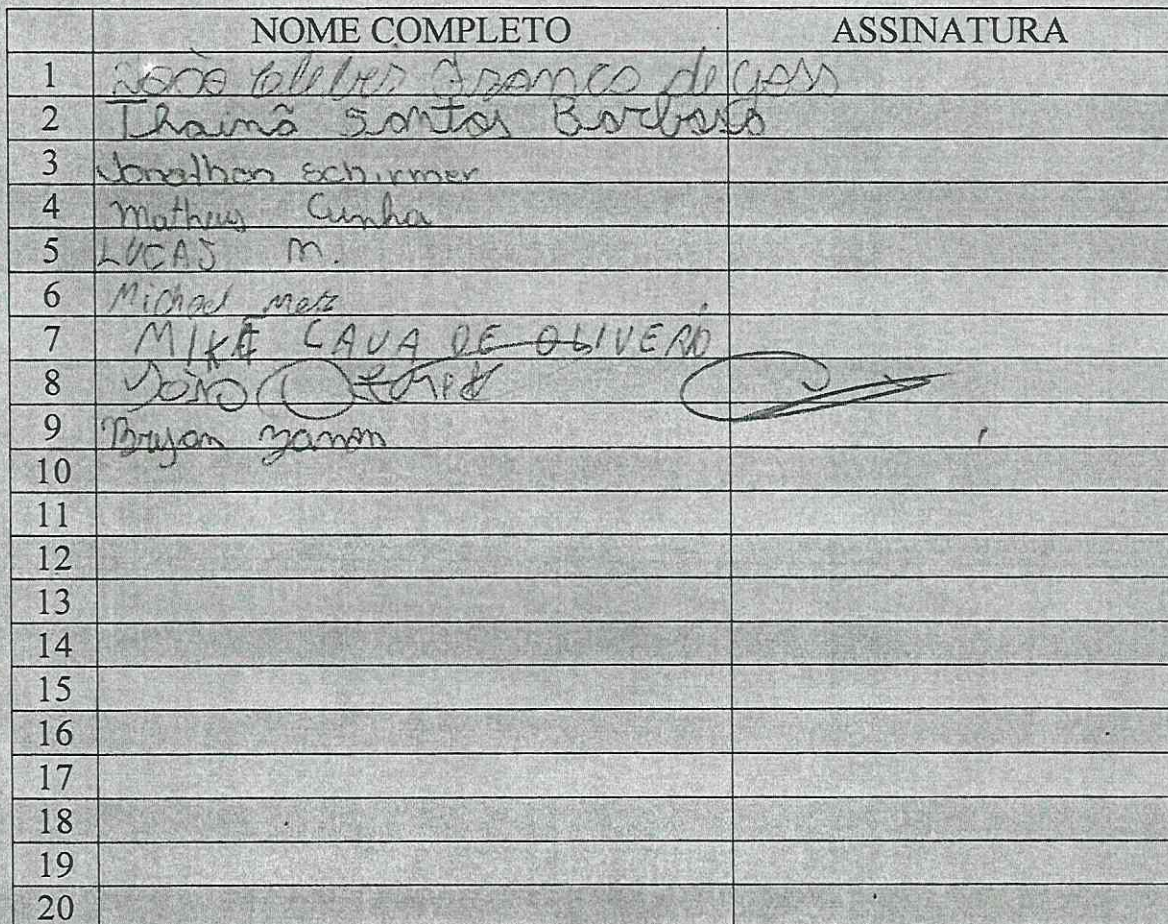 NOME COMPLETO ASSINATURA
1 João Franco de
2 Thainã Santos Barbosa
3 Jonathan Schirmer
4 Matheus Cunha
5 LUCAS M.
6 Michael Metz
7 MIKE CAUA DE OLIVERO
8 João
9 Bryan Zanon
10
11
12
13
14
15
16
17
18
19
20